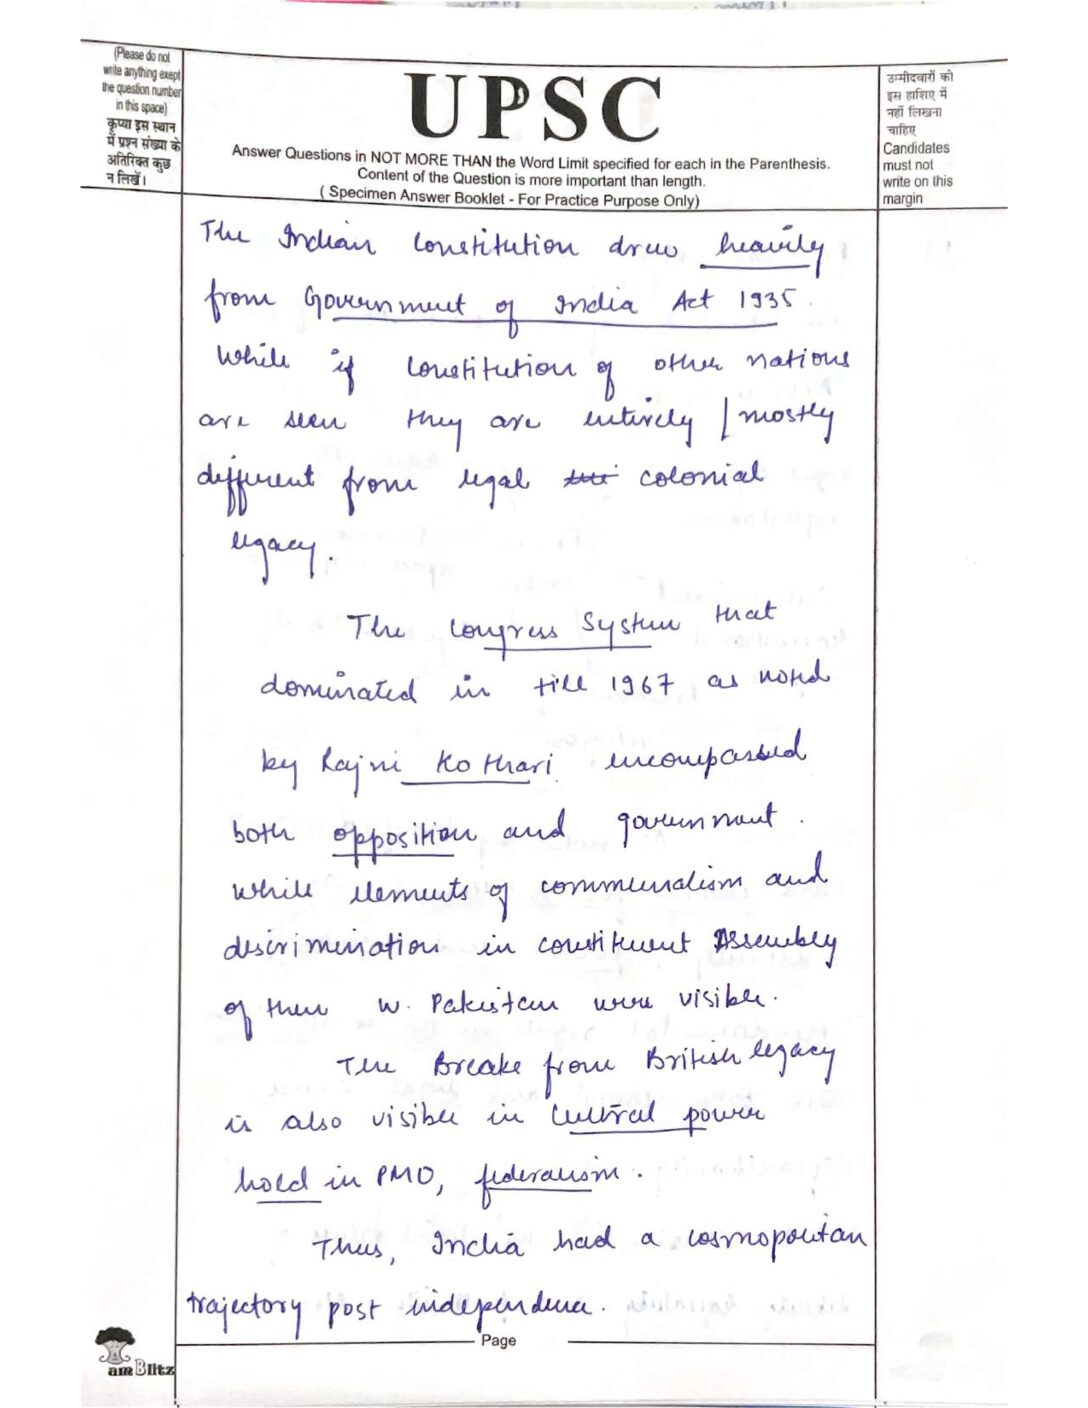 (Please do not
write anything exept
the question number
in this space)
कृप्या इस स्थान
में प्रश्न संख्या के
अतिरिक्त कुछ
न लिखें।
UPSC
Answer Questions in NOT MORE THAN the Word Limit specified for each in the Parenthesis.
Content of the Question is more important than length.
( Specimen Answer Booklet - For Practice Purpose Only)
उम्मीदवारों को
इस हाशिए में
नहीं लिखना
चाहिए
Candidates
must not
write on this
margin
The Indian Constitution drew heavily
from Government of India Act 1935.
While if constitution of other nations
are seen they are entirely / mostly
different from legal colonial
legacy.
The Congress System that
dominated in till 1967 as noted
by Rajni Kothari encompassed
both opposition and government.
While elements of communalism and
discrimination in constituent Assembly
of then W. Pakistan were visible.
The Breake from British legacy
is also visible in power
hold in PMO, federalism.
Thus, India had a cosmopolitan
trajectory post independence.
Page
amBlitz